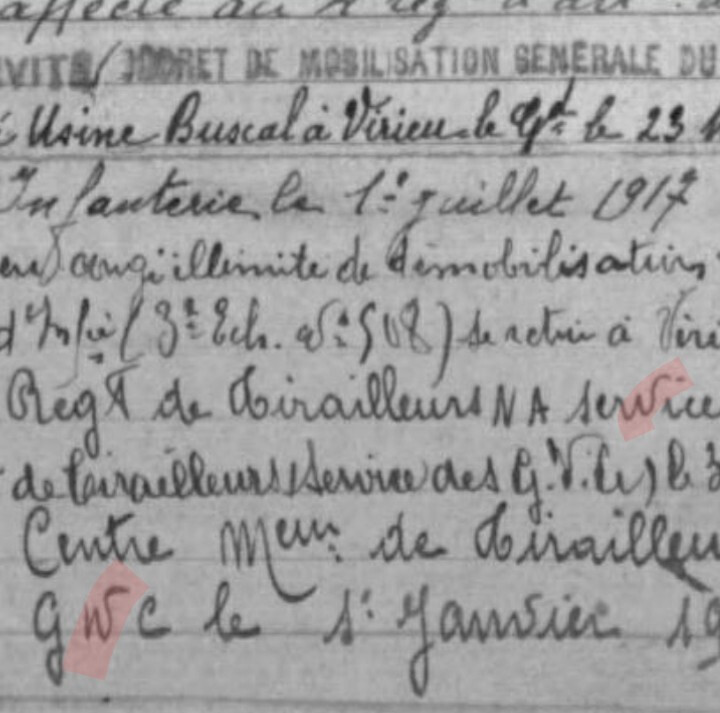 affecté au
DÉCRET DE MOBILISATION GENERALE DU
Usine Buscal à Virieu le Gd le 23
Infanterie le 1er juillet 1917
congé illimité de démobilisation
d'Infie (3e Ech. No 508) se retire à Viri
Regt de Tirailleurs NA service
de Tirailleurs (Service des G.V.C.) le 3
Centre Meur de Tirailleu
GVC le 1er Janvier 19